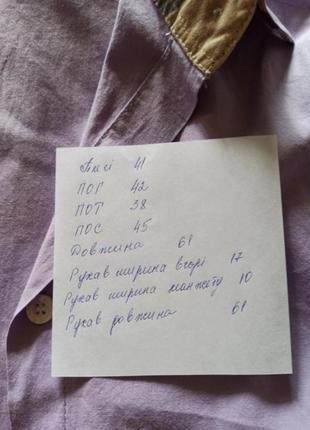 Плечі 41
ПОГ 42
ПОТ 38
ПОС 45
Довжина 61
Рукав ширина вгорі 17
Рукав ширина манжету 10
Рукав довжина 61